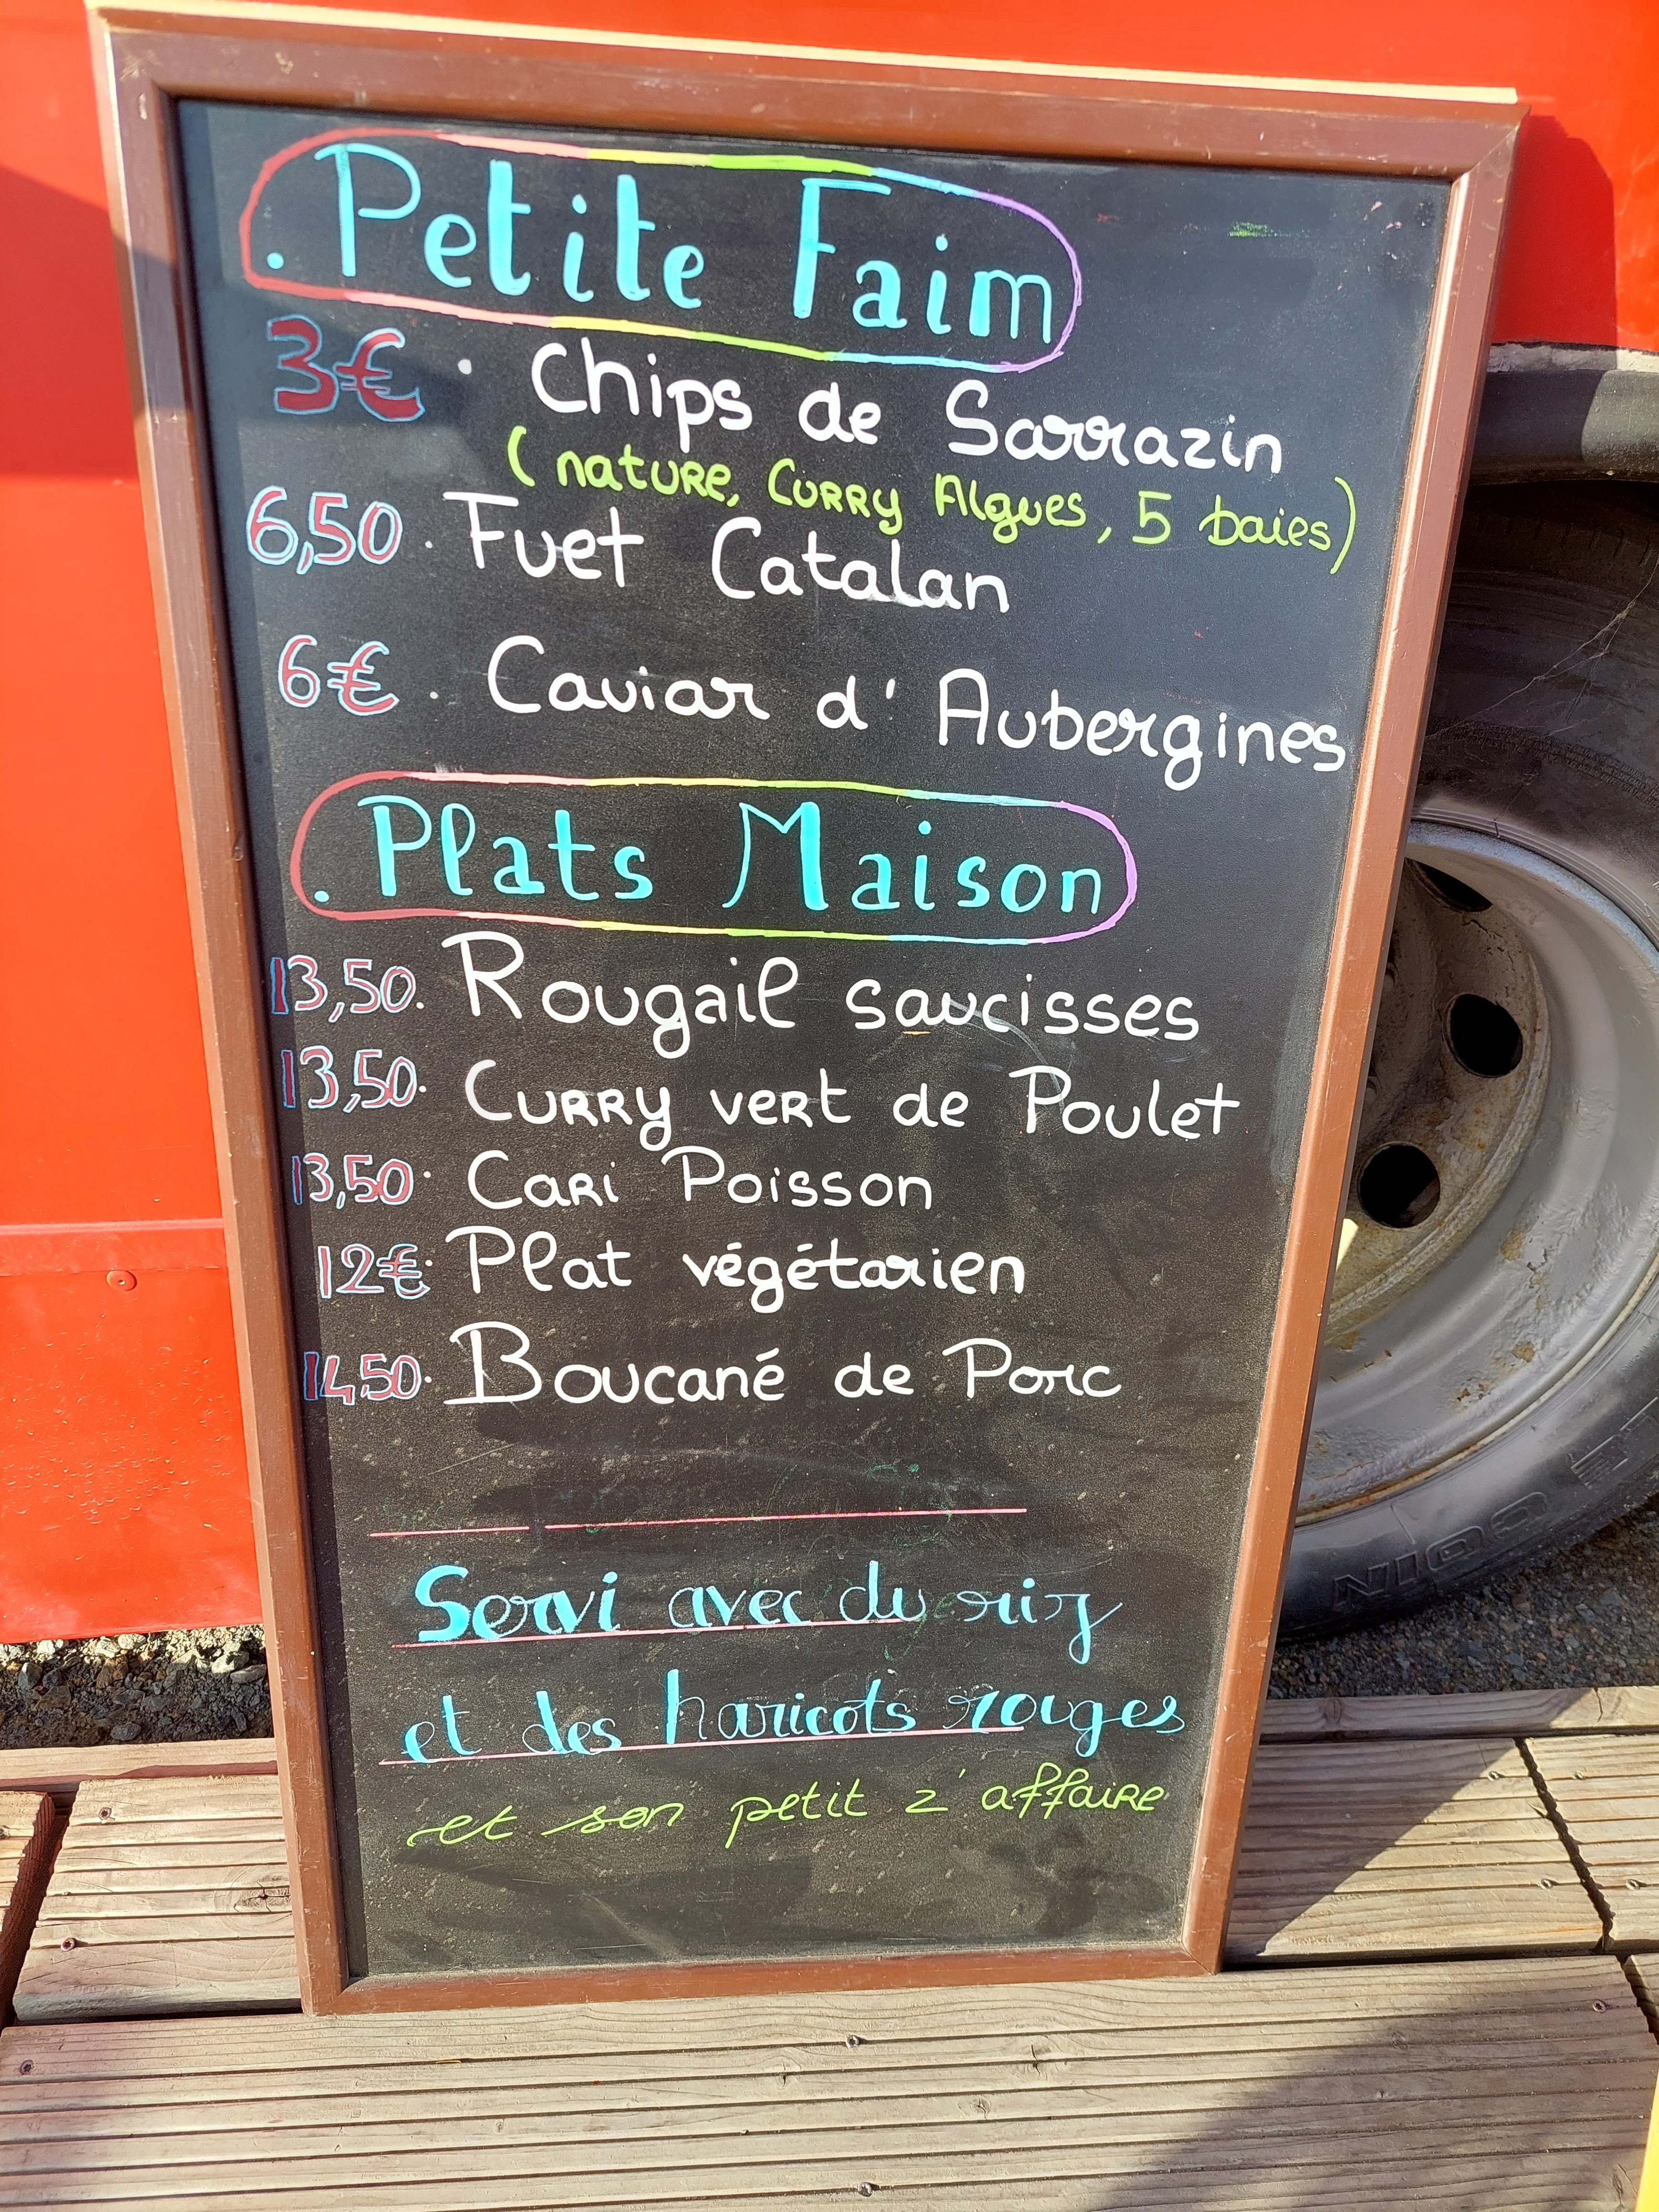 . Petite Faim
3€ · Chips de Sarrazin
(nature, Curry Algues, 5 baies)
6,50 . Fuet Catalan
6€ . Caviar d'Aubergines
. Plats Maison
13,50. Rougail saucisses
13,50. Curry vert de Poulet
13,50. Cari Poisson
12€. Plat végétarien
14,50. Boucané de Porc
Servi avec du riz
et des haricots rouges
et son petit z'affaire